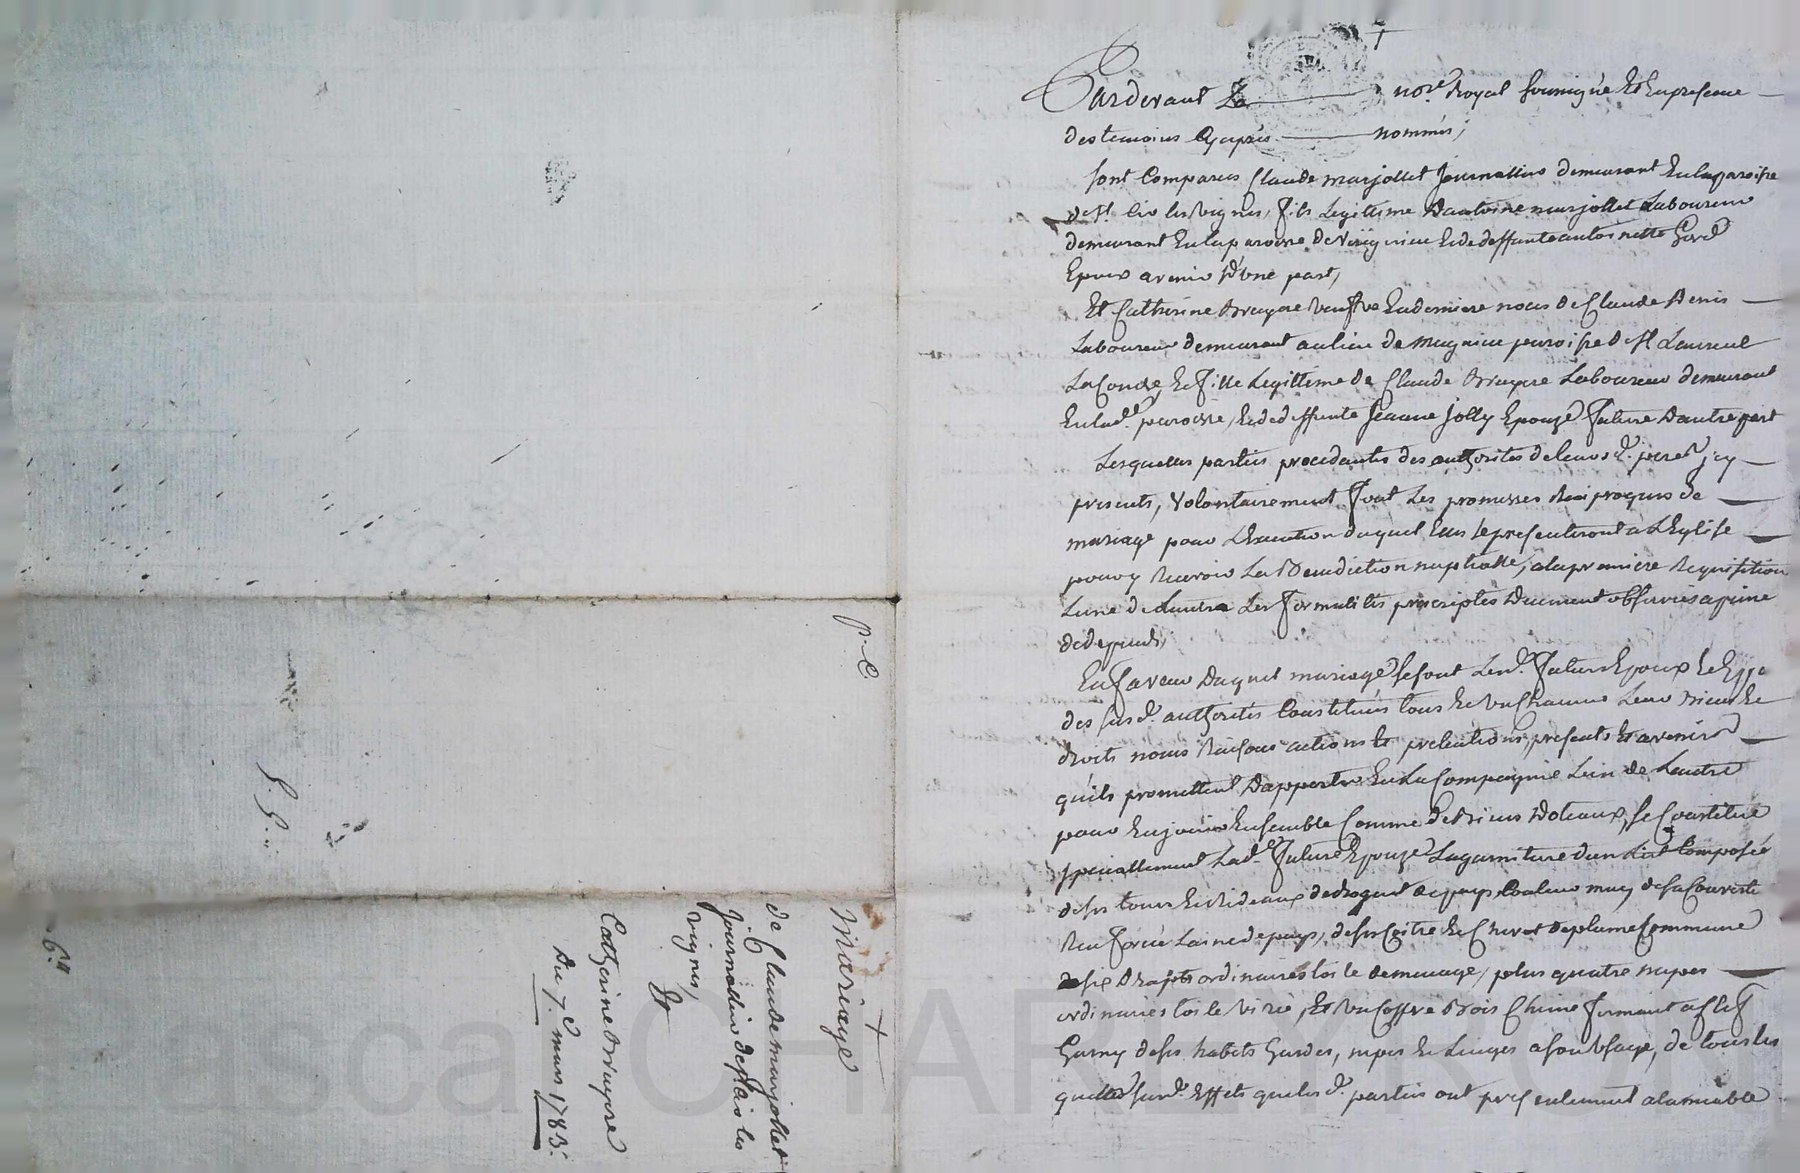 Pardevant Le nore. Royal soussigné Et En presence
des temoins Cy après nommés;
sont Comparus Claude marjollet Journallier demeurant En la paroisse
de st. Cir les vignes, fils Legittime D'antoine marjollet Laboureur
demeurant En la paroisse de Virignieu Et de deffunte antoinette
Epoux avenir D'une part,
Et Catherine Bruyere veufve En derniere noces de Claude Denis
Laboureur demeurant au lieu de Magnieu paroisse de st Laurent
La Conche Et fille Legittime de Claude Bruyere Laboureur demeurant
En lad. paroisse, Et de deffunte Jeanne Jolly Epouze future D'autre part
Lesquelles parties procedantes des authorités de leurs d. peres jcy
presents, volontairement font Les promesses Reciproques de
mariage pour L'Execution duquel Elles se presenteront a L'Eglise
pour y Recevoir La Benediction nuptialle, a la premiere Requisition
L'une de L'autre Les formalités prescriptes Duement observées a peine
de depends,
En faveur Duquel mariage se sont Lesd. futurs Epoux
des susd. authorités Constitués tous Et un Chacuns Leurs Biens Et
droits noms Raisons actions Et pretentions, presents Et avenirs
qu'ils promettent D'apporter En La Compagnie L'un de L'autre
pour En jouir Ensemble Comme de Biens Doteaux, se Constitue
speciallement Lad. future Epouze La garniture d'un Lict Composée
de ses tours Et Rideaux de droguet de pays Couleur de sa Couverte
Renforcée Laine de pays, de ses Coitre Et Chevet De plume Commune
de six Draps ordinaires toile de menage, plus quatre napes
ordinaires toile Et un Coffre Bois Chene fermant a Clef
Garny de ses habits Gardes, nipes Et Linges a son usage, de tous les
quels susd. Effets que les d. parties ont presentement a l'amiable
p. C.
Mariage
de Claude marjollet
Journallier de st Cir les
vignes,
Et
Catherine Bruyere
Du 7e. mars 1785.